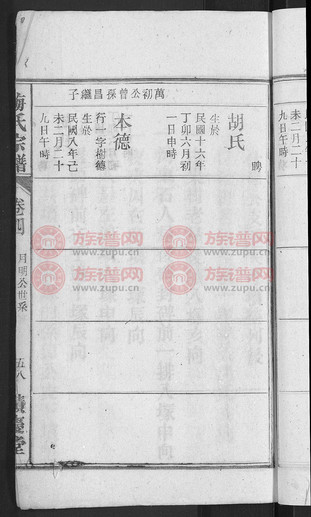 萬初公曾孫昌繼子
聘
胡氏
生於
民國十六年
丁卯六月初
一日申時
本德
行一字樹德
生於
民國八年己
未二月二十
九日午時
未二月二十
九日午時
氏宗譜
卷四
公世系
五八
堂
族譜网
www.zupu.cn
族譜网
www.zupu.cn
族譜网
www.zupu.cn
族譜网
www.zupu.cn
族譜网
www.zupu.cn
族譜网
www.zupu.cn